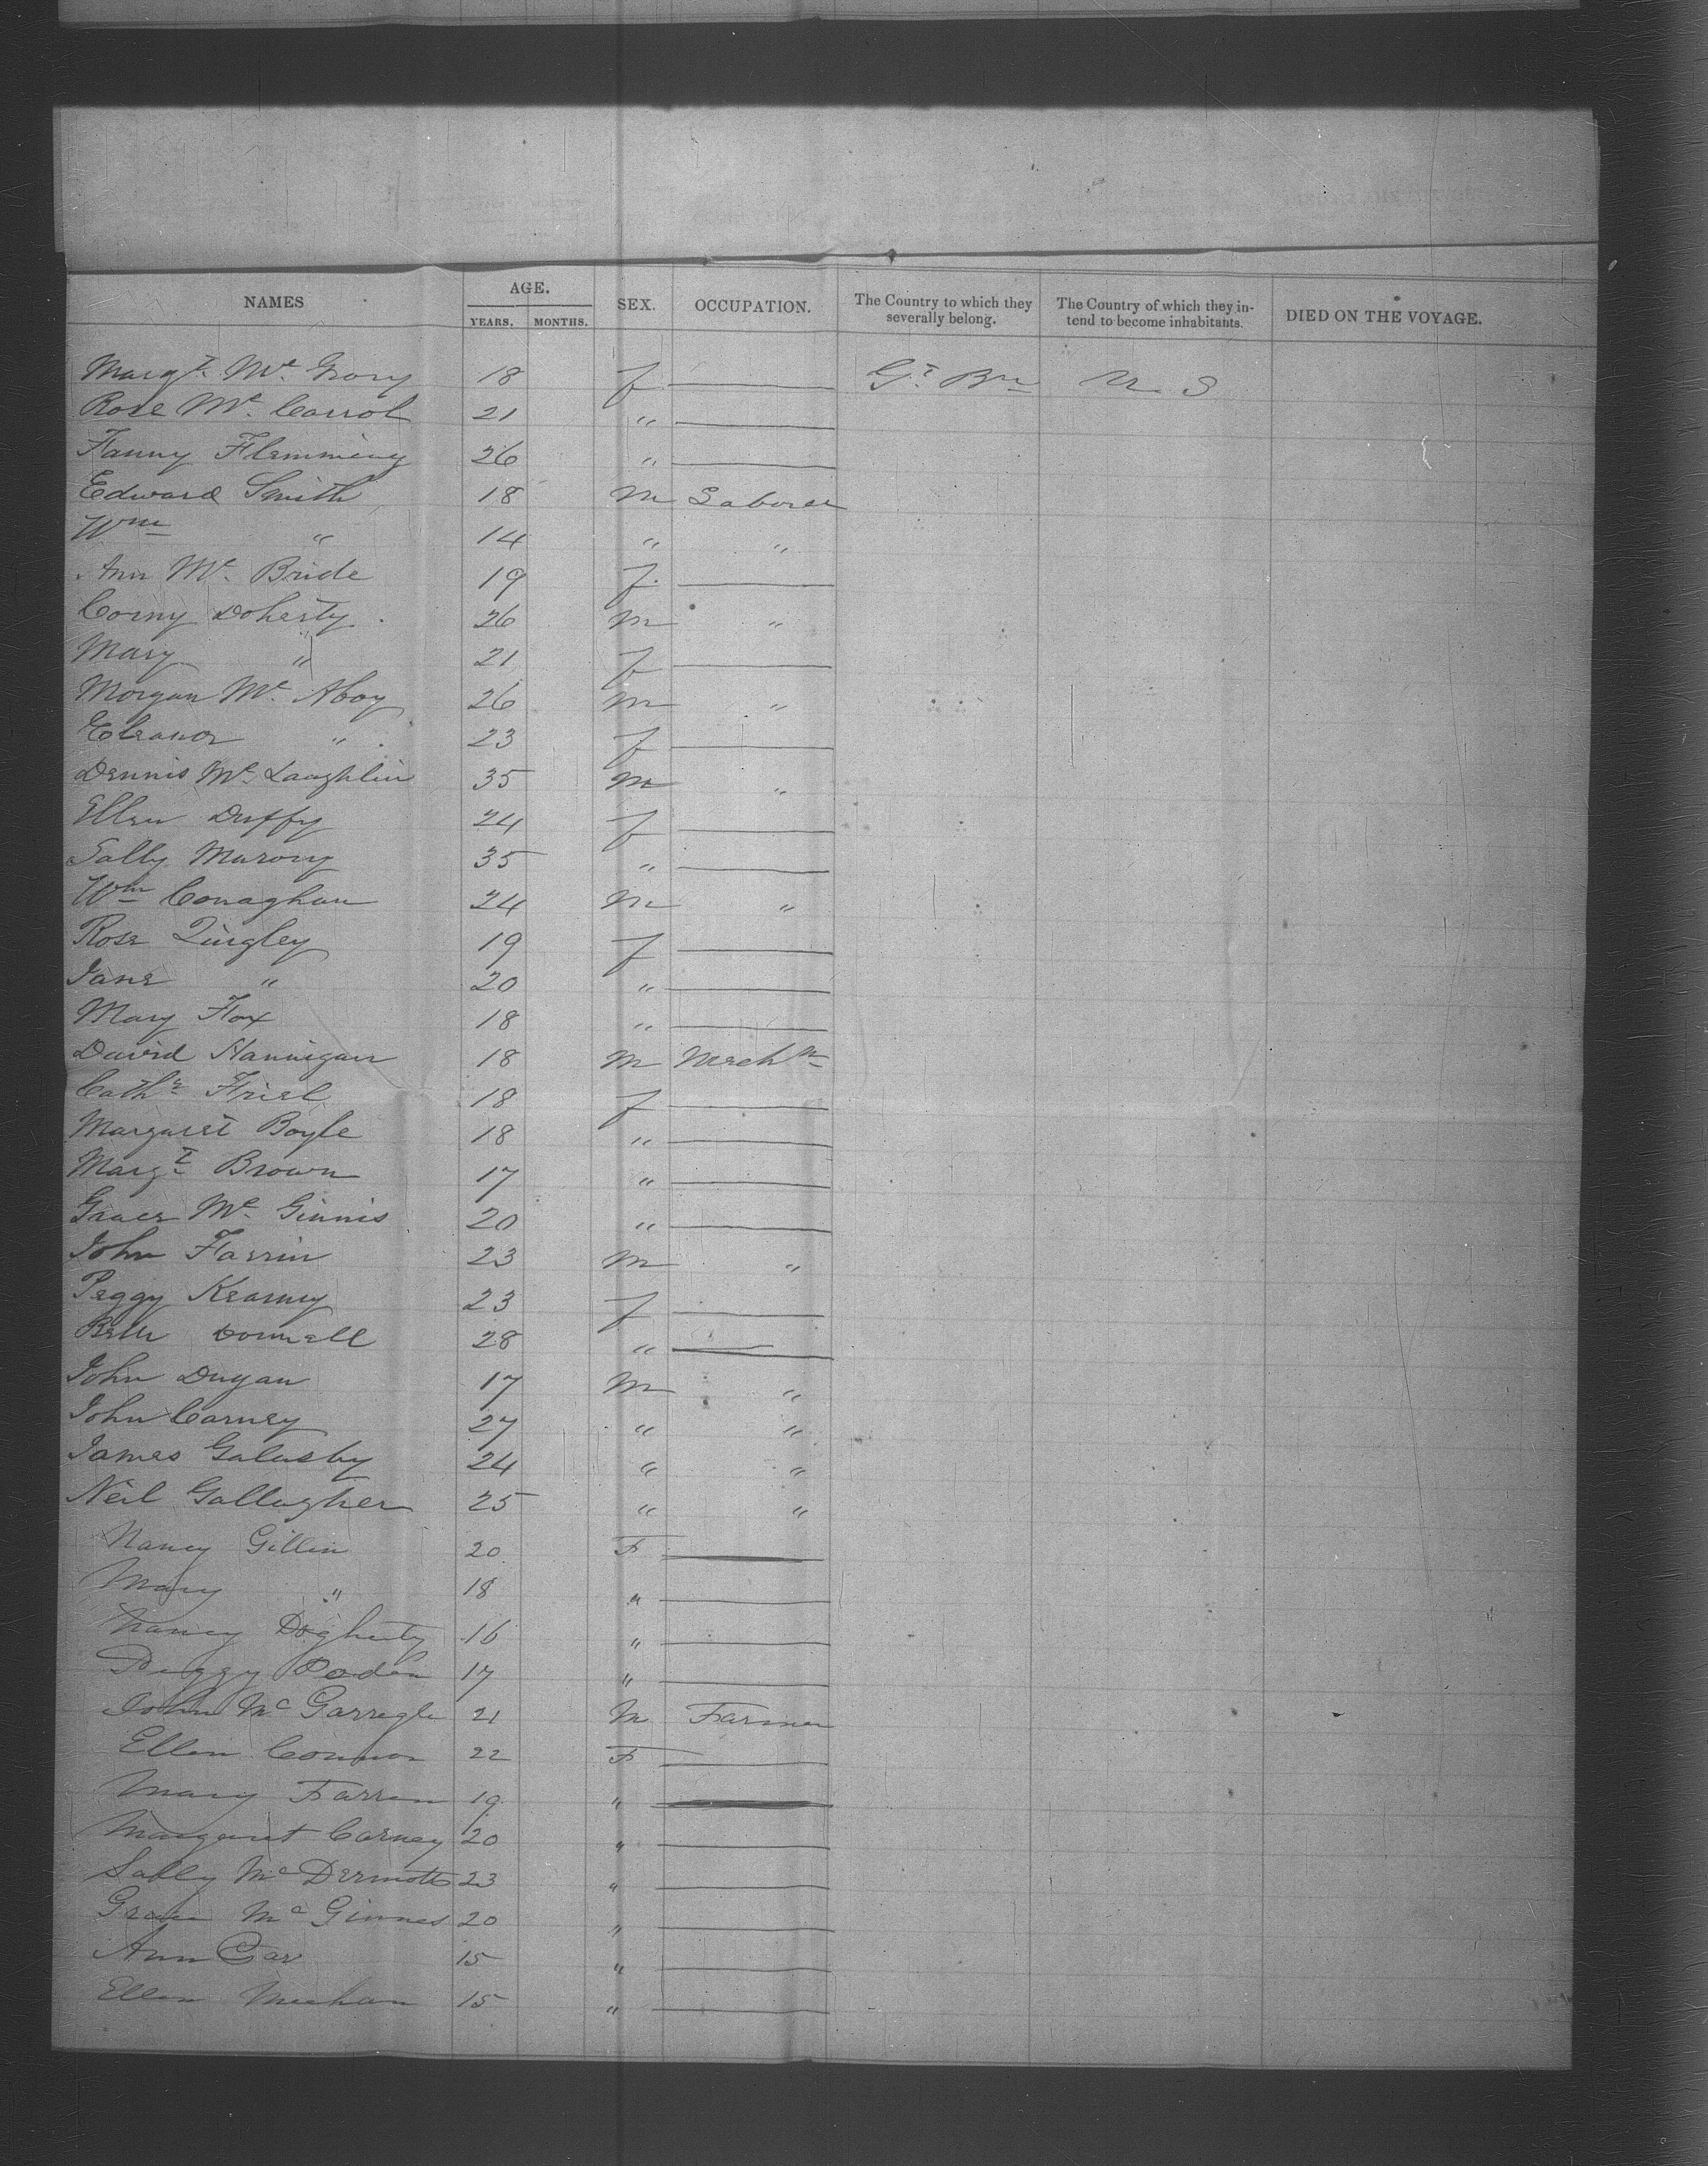 NAMES AGE. YEARS. MONTHS. SEX. OCCUPATION. The Country to which they severally belong. The Country of which they intend to become inhabitants. DIED ON THE VOYAGE.
Margt. Mc. 18 f — Gt Brn U. S
Rose Mc. Carrol 21 " —
Fanny Flemming 26 " —
Edward Smith 18 M Laborer
Wm " 14 " "
Ann Mc. Bride 19 f. —
Corny Doherty. 26 M "
Mary " 21 f —
Morgan Mc. Aboy 26 M "
Eleanor " 23 f —
Dennis Mc. Laughlin 35 M "
Ellen Duffy 24 f —
Sally Marony 35 " —
Wm Conaghan 24 M "
Rose Quigley 19 f —
Jane " 20 " —
Mary Fox 18 " —
David Hannigan 18 M Mechn
Cathe Friel 18 f —
Margaret Boyle 18 " —
Margt Brown 17 " —
Grace Mc. Ginnis 20 " —
John Farrin 23 M "
Peggy Kearney 23 f —
Donnell 28 " —
John Dugan 17 M "
John Carney 27 " "
James 24 " "
Neil Gallagher 25 " "
Nancy Gillin 20 F —
Mary " 18 " —
Nancy Dogherty 16 " —
Peggy 17 " —
John Mc 21 M Farmer
Ellen Connor 22 F —
Mary Farren 19 " —
Margaret Carney 20 " —
Sally Mc Dermott 23 " —
Grace Mc Ginnes 20 " —
Ann 15 " —
Ellen Meehan 15 " —